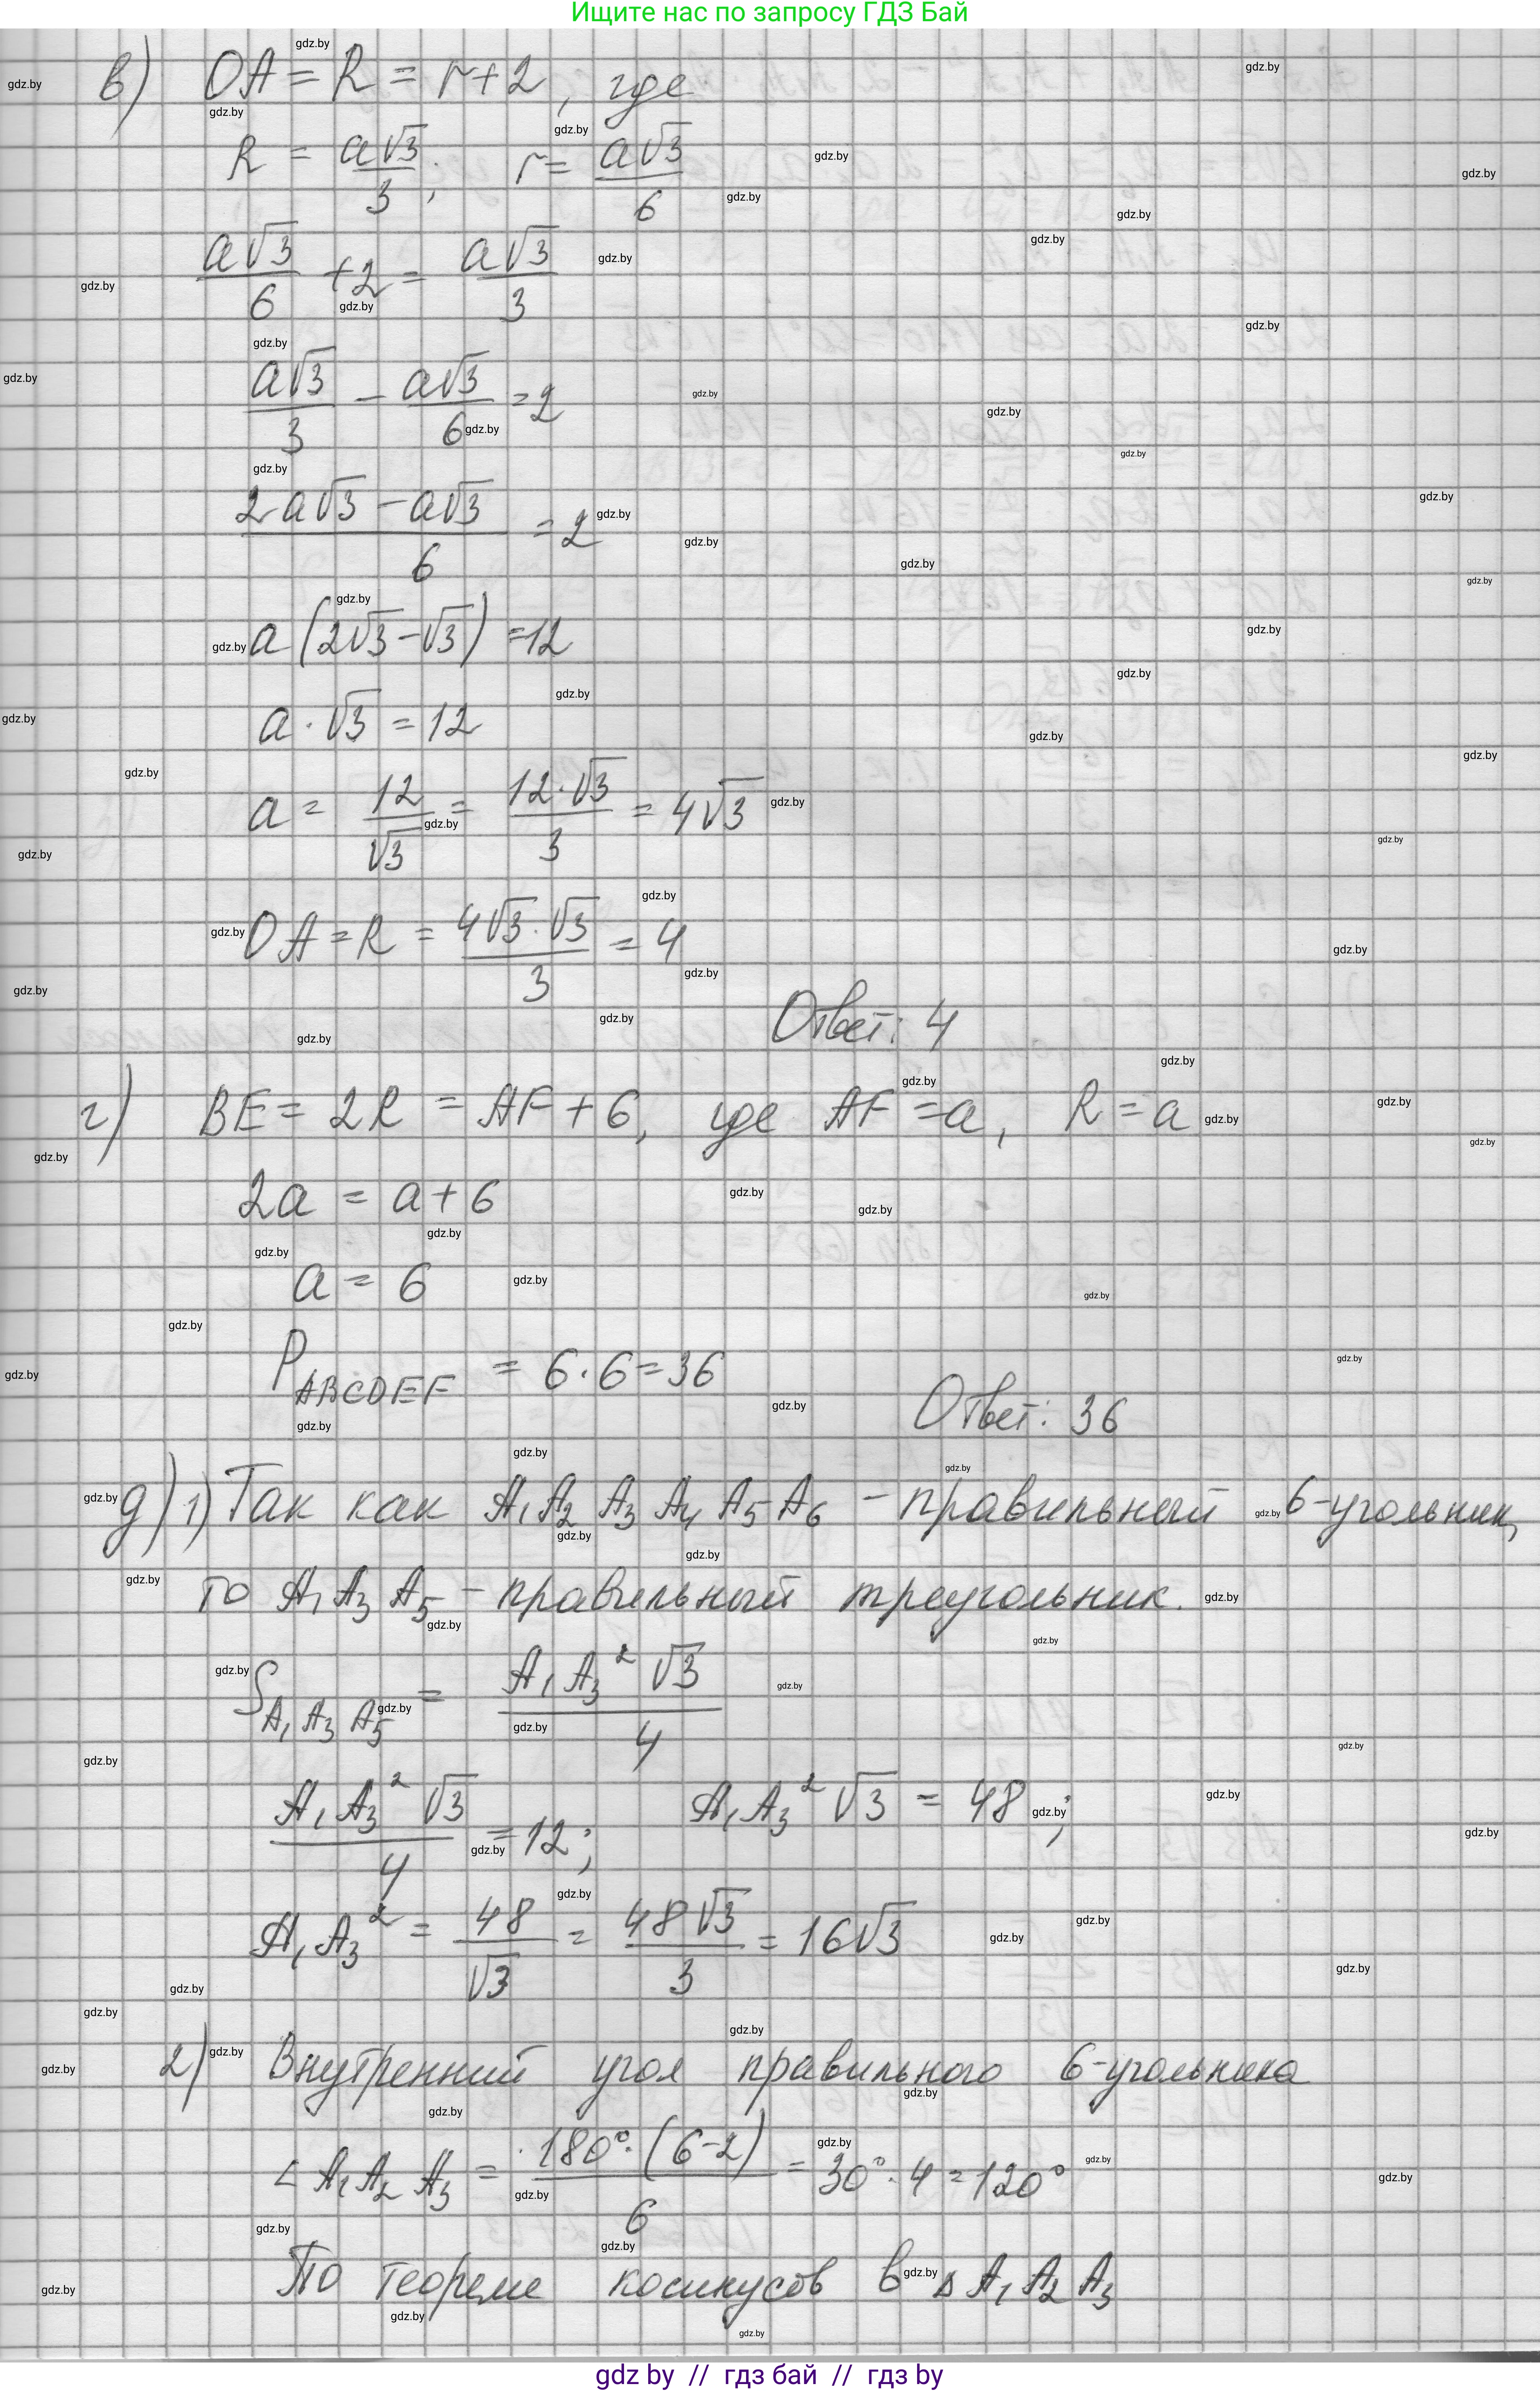 Ищите нас по запросу ГДЗ Бай
в) OA = R = r+2, где
R = a√3/3; r = a√3/6
a√3/6 + 2 = a√3/3
a√3/3 − a√3/6 = 2
(2a√3 − a√3)/6 = 2
a(2√3−√3) = 12
a · √3 = 12
a = 12/√3 = 12·√3/3 = 4√3
OA = R = 4√3·√3/3 = 4
Ответ: 4
г) BE = 2R = AF + 6, где AF = a, R = a
2a = a + 6
a = 6
P_ABCDEF = 6·6 = 36
Ответ: 36
д) 1) Так как A₁A₂A₃A₄A₅A₆ – правильный 6-угольник,
то A₁A₃A₅ – правильный треугольник.
S_A₁A₃A₅ = A₁A₃²√3/4
A₁A₃²√3/4 = 12; A₁A₃²√3 = 48;
A₁A₃² = 48/√3 = 48√3/3 = 16√3
2) Внутренний угол правильного 6-угольника
∠A₁A₂A₃ = 180°·(6−2)/6 = 30°·4 = 120°
По теореме косинусов в ΔA₁A₂A₃
gdz by // гдз бай // гдз by